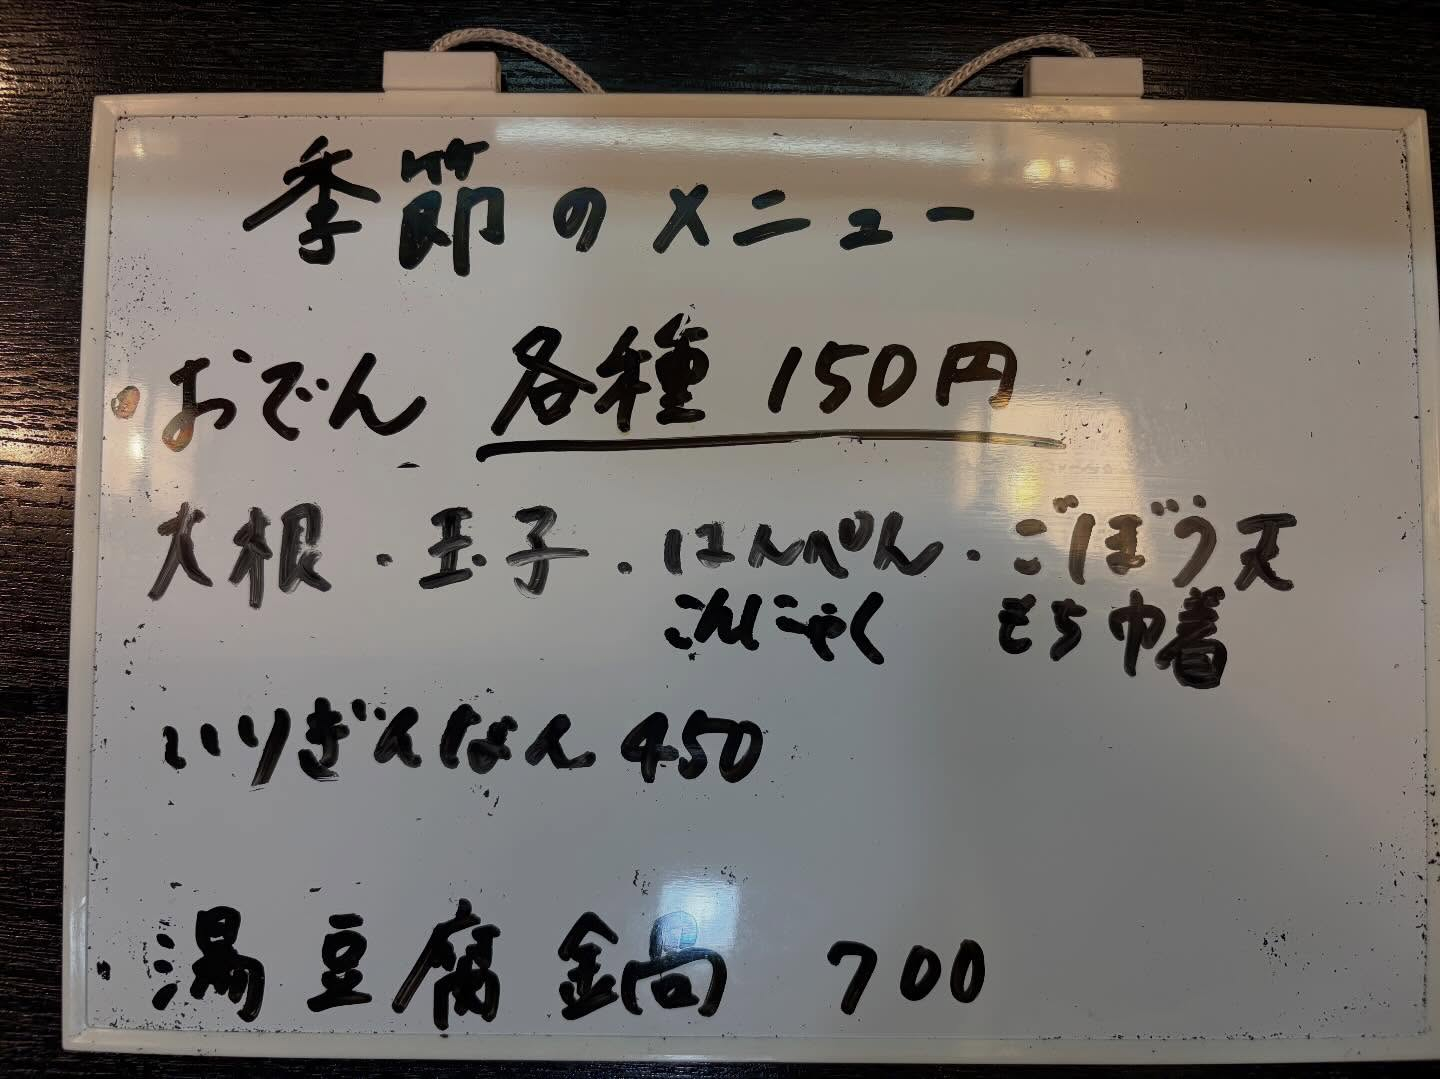 季節のメニュー
・おでん 各種 150円
大根・玉子・はんぺん・ごぼう天
こんにゃく もち巾着
いりぎんなん 450
・湯豆腐鍋 700